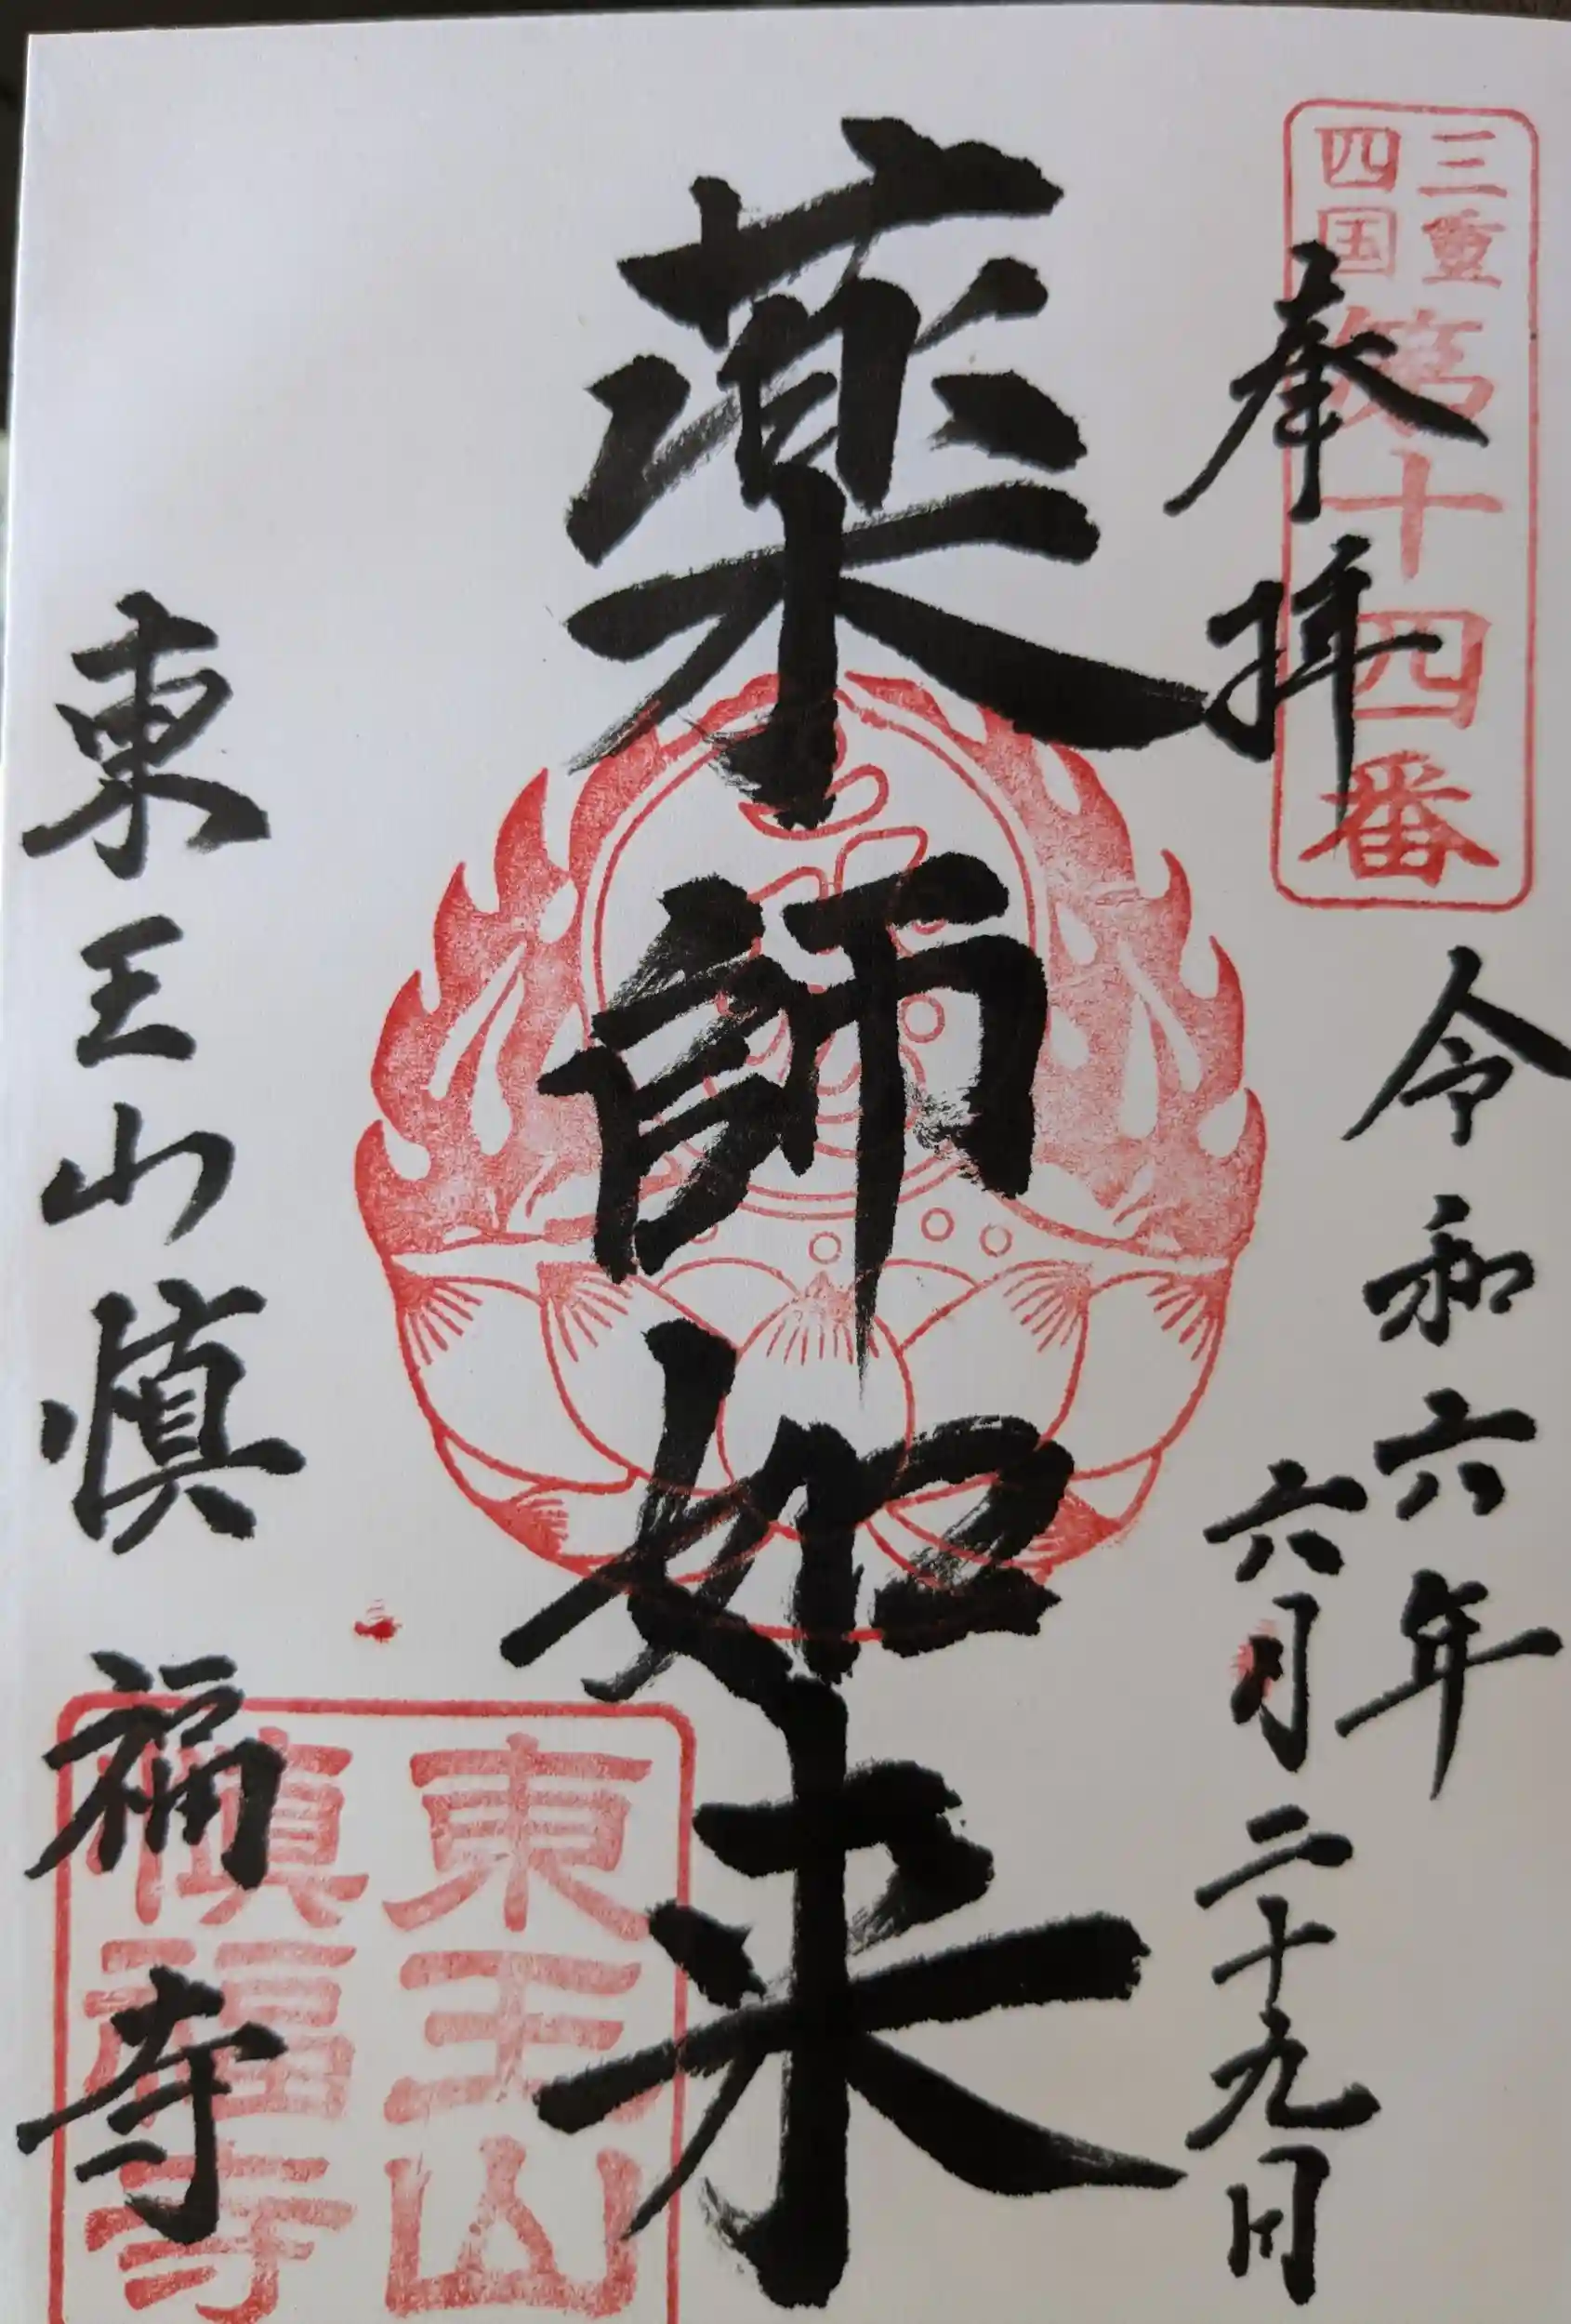 三重
四国
第十四番
奉拝
令和六年
六月二十九日
薬師如来
東王山慎福寺
東王山
慎福寺